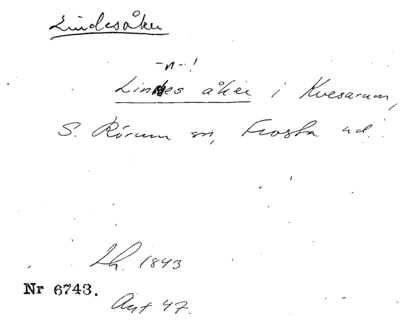 Lindesåker
-n-!
Lindes åker i Kvesarum,
S. Rörum sn, Frosta hd.
Lh. 1843
Nr 6743.
Avt 47.